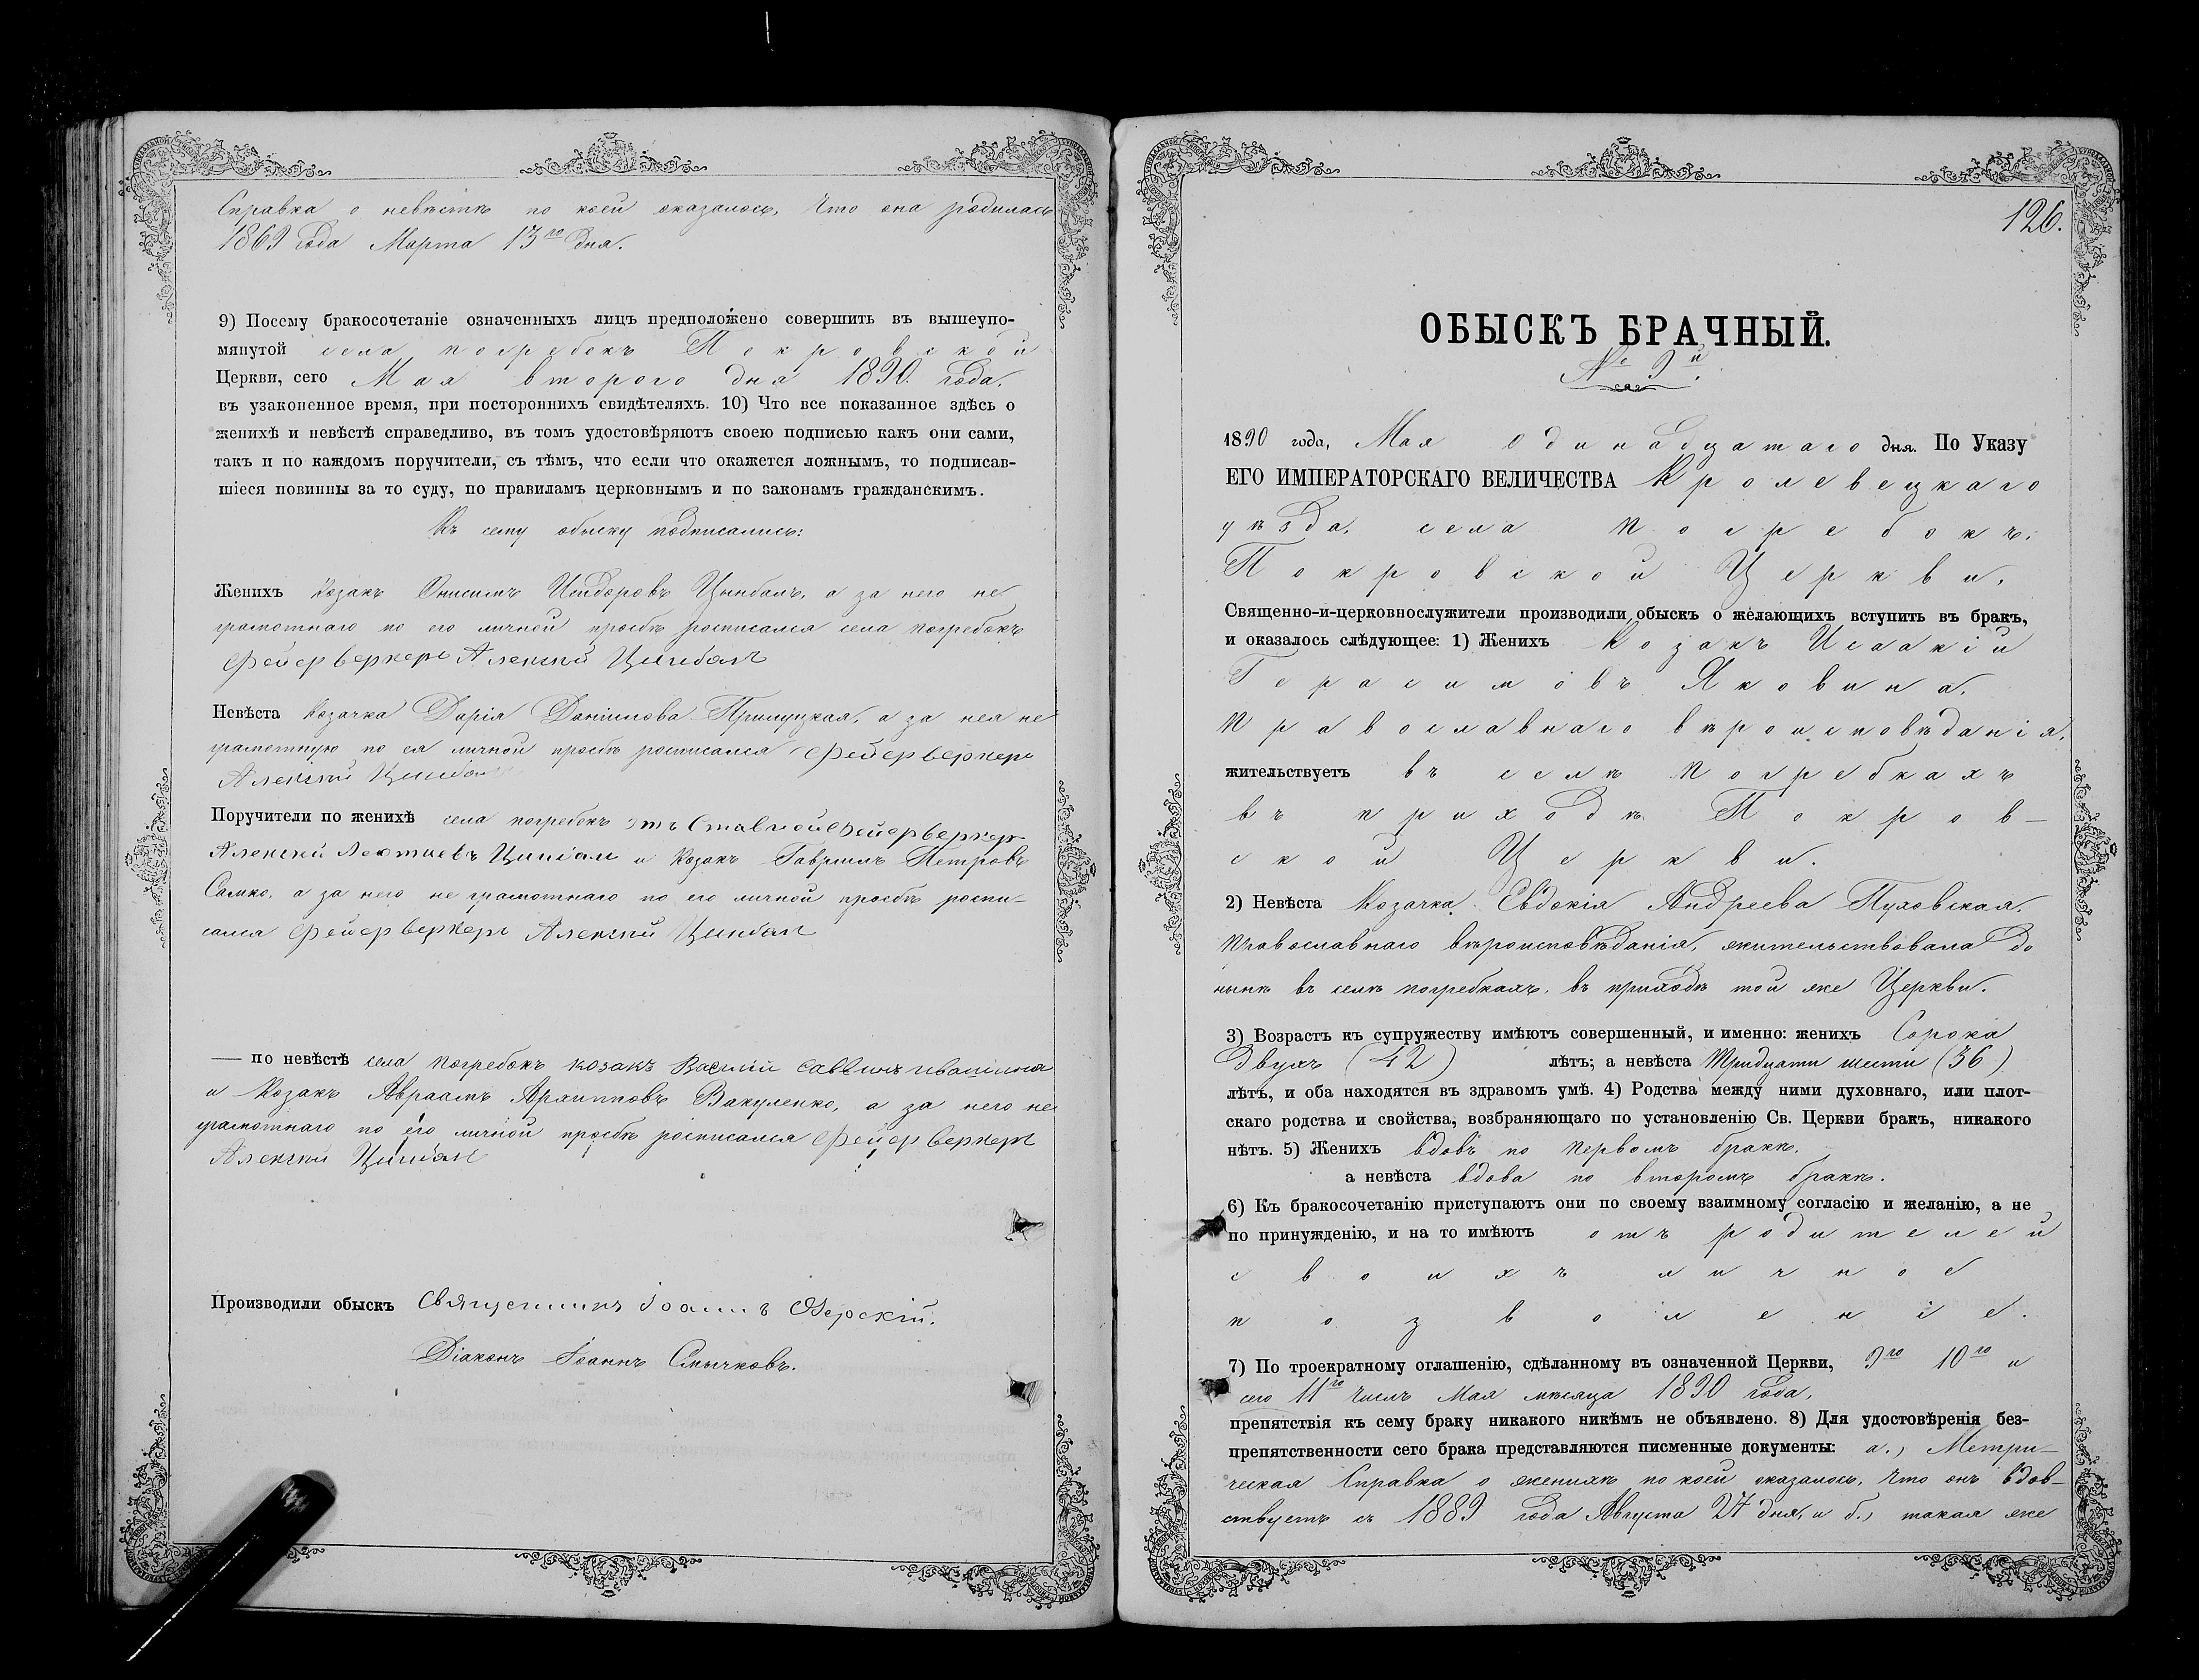 Справка о невѣстѣ по коей оказалось, что она родилась
1869 года Марта 13го дня.
9) Посему бракосочетаніе означенныхъ лицъ предположено совершить въ вышеупо-
мянутой села Погребокъ Покровской
Церкви, сего Мая второго дня 1890. года.
въ узаконенное время, при постороннихъ свидѣтеляхъ. 10) Что все показанное здѣсь о
женихѣ и невѣстѣ справедливо, въ томъ удостовѣряютъ своею подписью какъ они сами,
такъ и по каждомъ поручители, съ тѣмъ, что если что окажется ложнымъ, то подписав-
шіеся повинны за то суду, по правиламъ церковнымъ и по законамъ гражданскимъ.
Къ сему обыску подписались:
Женихъ Козакъ Онисимъ Исидоровъ Цымбалъ, а за него не
грамотнаго по его личной просьбѣ росписался села Погребокъ
Фейерверкеръ Алексѣй Цимбалъ
Невѣста Козачка Дарія Даніилова Прилуцкая, а за нея не
грамотную по ея личной просьбѣ росписался Фейерверкеръ
Алексѣй Цимбал
Поручители по женихѣ села погребокъ отъ Ставной Фейерверкер
Алексѣй Леонтиевъ Цимбал и Козакъ Гавріилъ Петровъ
Самко, а за него не грамотнаго по его личной просьбѣ роспи-
сался Фейерверкеръ Алексѣй Цимбал
— по невѣстѣ села Погребокъ козакъ Василій Саввинъ
и Козакъ Авраамъ Архиповъ Вакуленко, а за него не
грамотнаго по его личной просьбѣ росписался Фейерверкеръ
Алексѣй Цимбал
Производили обыскъ Священникъ Іоаннъ Озерскій.
Діаконъ Іоаннъ Смычковъ.
126.
ОБЫСКЪ БРАЧНЫЙ.
№ 9й.
1890 года, Мая одинадцатаго дня. По Указу
ЕГО ИМПЕРАТОРСКАГО ВЕЛИЧЕСТВА Кролевецкаго
уѣзда, села Погребокъ,
Покровской Церкви,
Священно-и-церковнослужители производили обыскъ о желающихъ вступить въ бракъ,
и оказалось слѣдующее: 1) Женихъ Козакъ Исаакій
Герасимовъ Яковина,
Православнаго вѣроисповѣданія,
жительствуетъ въ селѣ Погребкахъ
въ приходѣ Покров—
ской Церкви.
2) Невѣста Козачка Евдокія Андреева Пуховская,
Православнаго вѣроисповѣданія, жительствовала до
нынѣ въ селѣ Погребкахъ, въ приходѣ той же Церкви.
3) Возрастъ къ супружеству имѣютъ совершенный, и именно: женихъ Сорока
Двухъ (42) лѣтъ; а невѣста Тридцати шести (36)
лѣтъ, и оба находятся въ здравомъ умѣ. 4) Родства между ними духовнаго, или плот-
скаго родства и свойства, возбраняющаго по установленію Св. Церкви бракъ, никакого
нѣтъ. 5) Женихъ вдовъ по первомъ бракѣ,
а невѣста вдова по второмъ бракѣ.
6) Къ бракосочетанію приступаютъ они по своему взаимному согласію и желанію, а не
по принужденію, и на то имѣютъ отъ родителей
своихъ личное
позволеніе.
7) По троекратному оглашенію, сдѣланному въ означенной Церкви, 9го 10го и
сего 11го числъ Мая мѣсяца 1890 года,
препятствія къ сему браку никакого никѣмъ не объявлено. 8) Для удостовѣренія без-
препятственности сего брака представляются писменные документы: а., Метри—
ческая Справка о женихѣ по коей оказалось, что онъ вдов—
ствуетъ съ 1889 года Августа 27 дня, и б., такая же